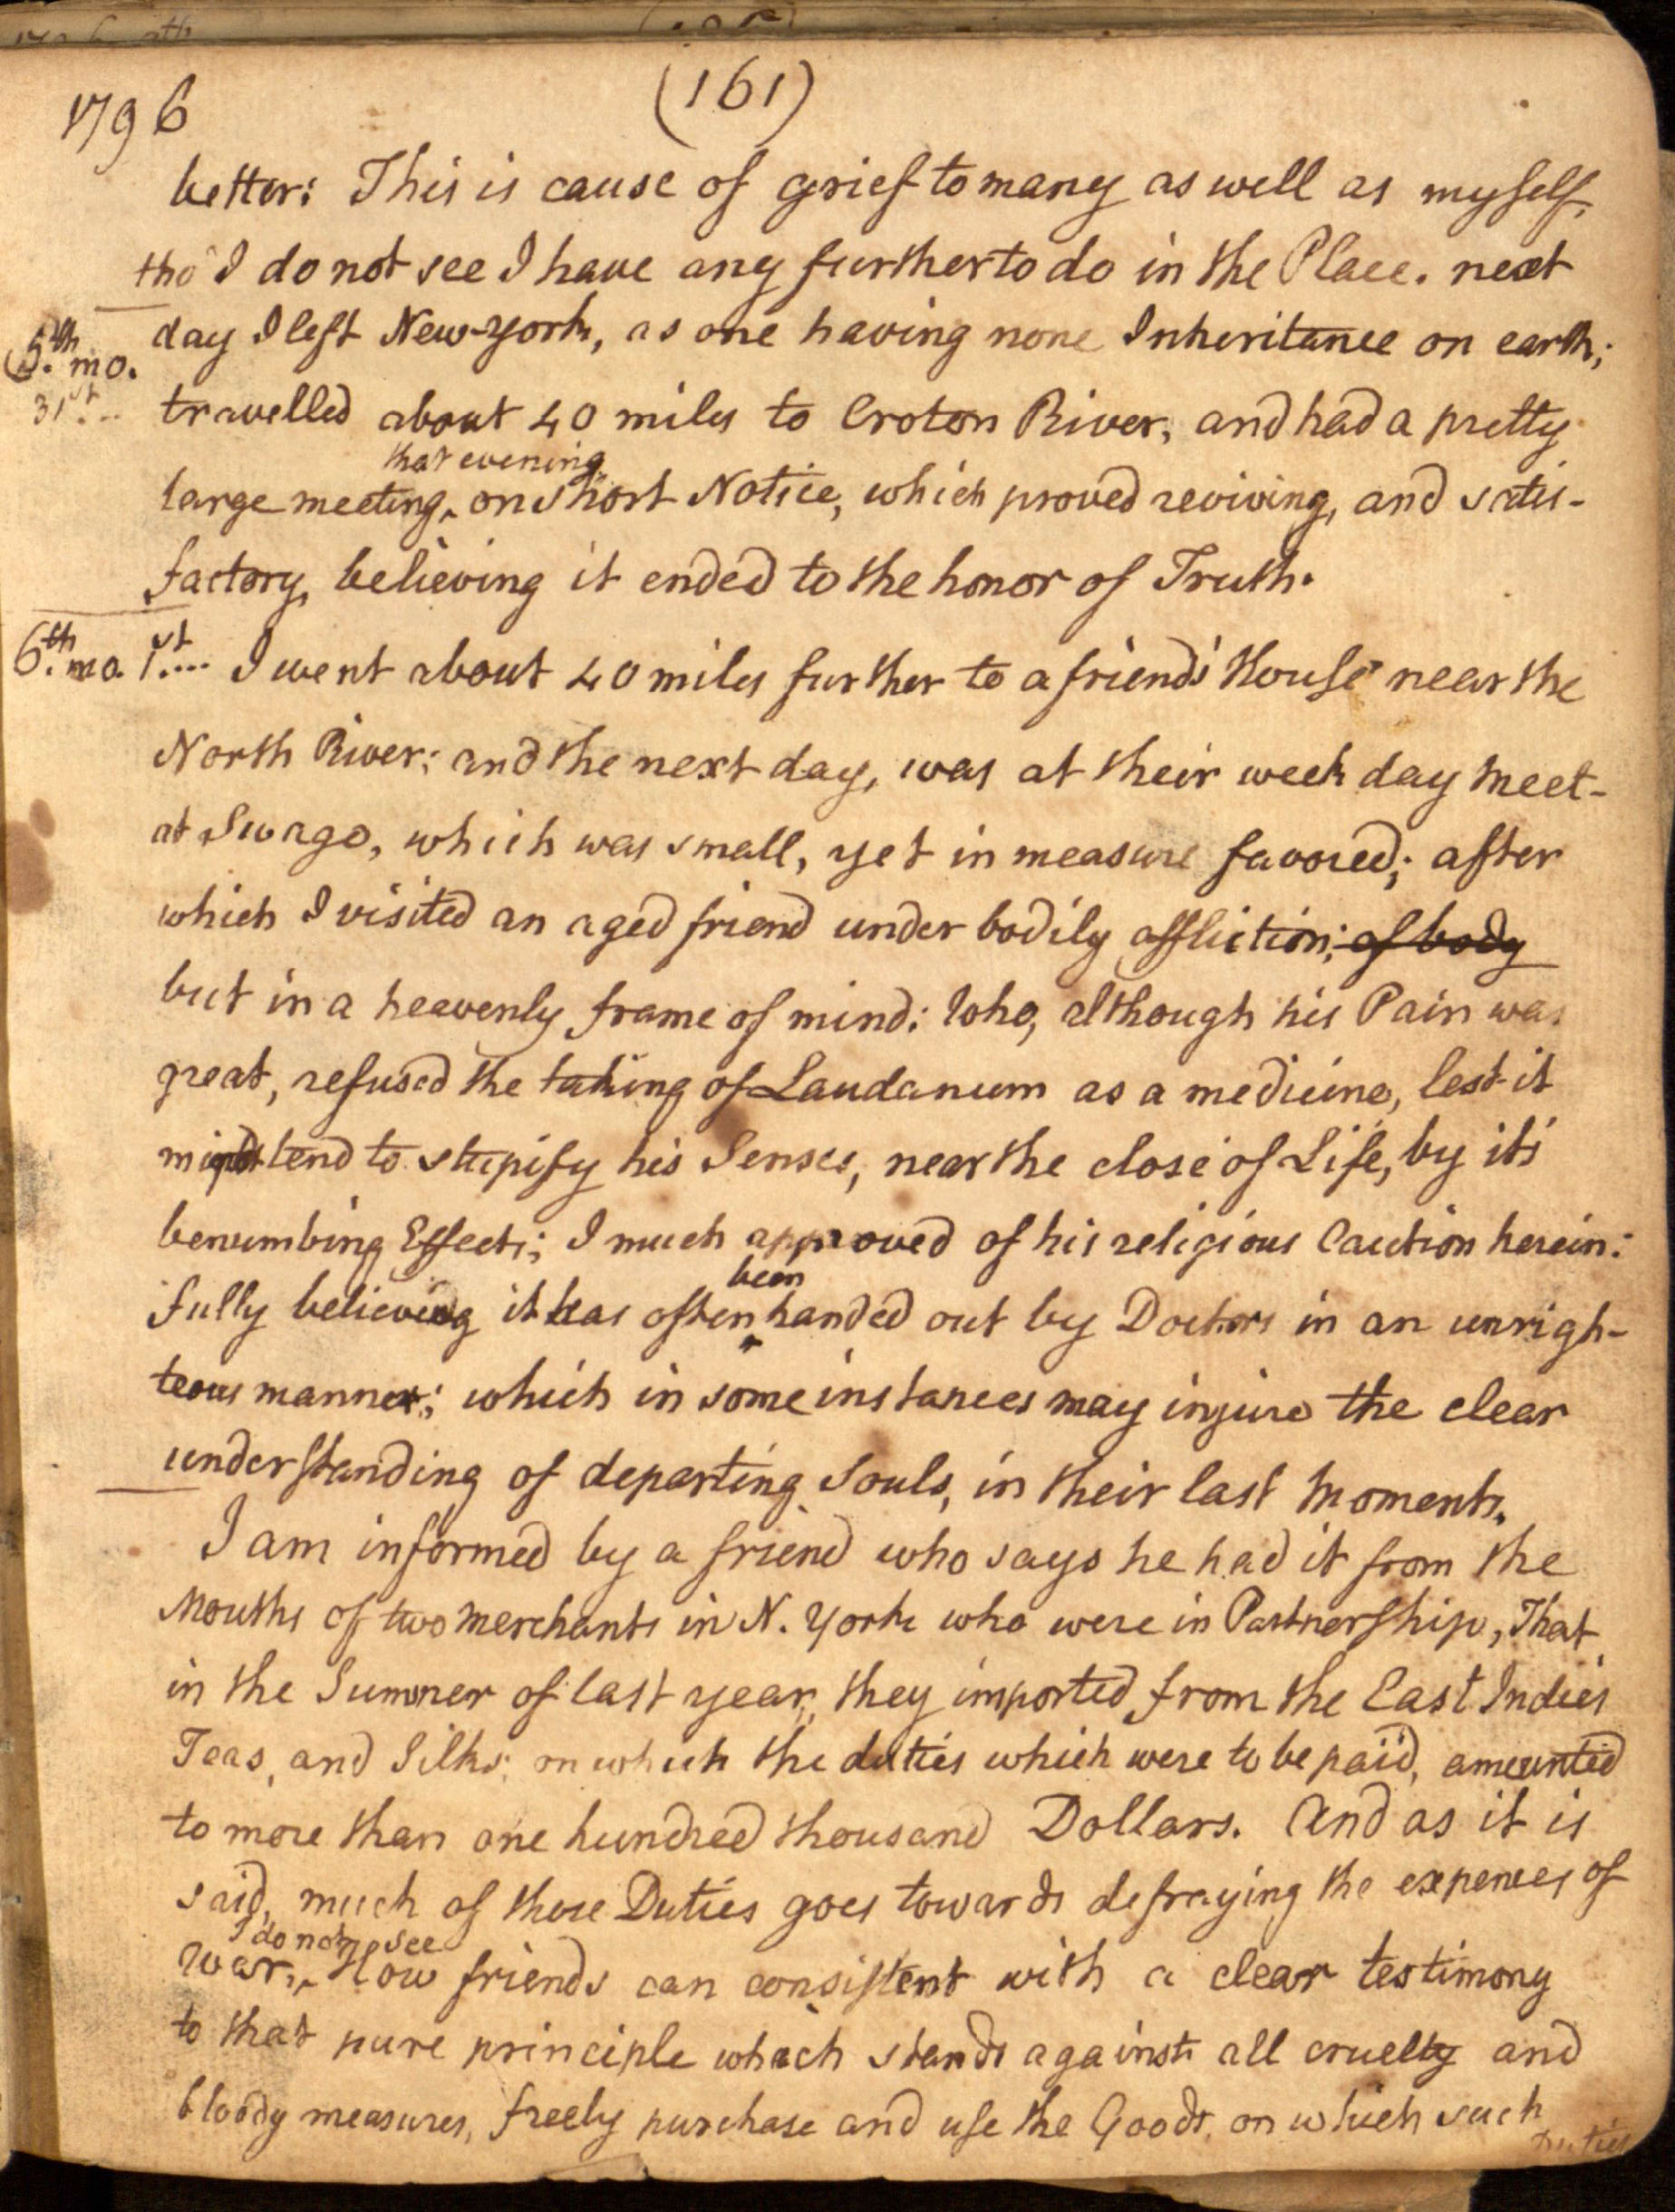 1796
(161)
better: This is cause of grief to many as well as myself,
tho' I do not see I have any further to do in the Place. next
day I left New-York, as one having none Inheritance on earth;
5th. mo.
31st...
travelled about 40 miles to Croton River, and had a pretty
that evening
large meeting ^ on short Notice, which proved reviving, and satis-
factory, believing it ended to the honor of Truth.
6th. mo. 1st.... I went about 40 miles further to a friends' House near the
North River; and the next day, was at their week day meet-
at Swago, which was small, yet in measure favored; after
which I visited an aged friend under bodily affliction; of body
but in a heavenly frame of mind: Who, although his Pain was
great, refused the taking of Laudanum as a medicine, lest it
might tend to stupify his Senses, near the close of Life, by its
benumbing Effects; I much approved of his religious Caution herein:
been
fully believing it has often ^ handed out by Doctors in an unrigh-
teous manner; which in some instances may injure the clear
understanding of departing Souls, in their last moments.
I am informed by a friend who says he had it from the
Mouths of two merchants in N. York who were in Partnership, That
in the Summer of last year, they imported from the East Indies
Teas, and Silks; on which the duties which were to be paid, amounted
to more than one hundred thousand Dollars. And as it is
said, much of those Duties goes towards defraying the expences of
I do not see
War, ^ How friends can consistent with a clear testimony
to that pure principle which stands against all cruelty and
bloody measures, freely purchase and use the Goods, on which such
Duties